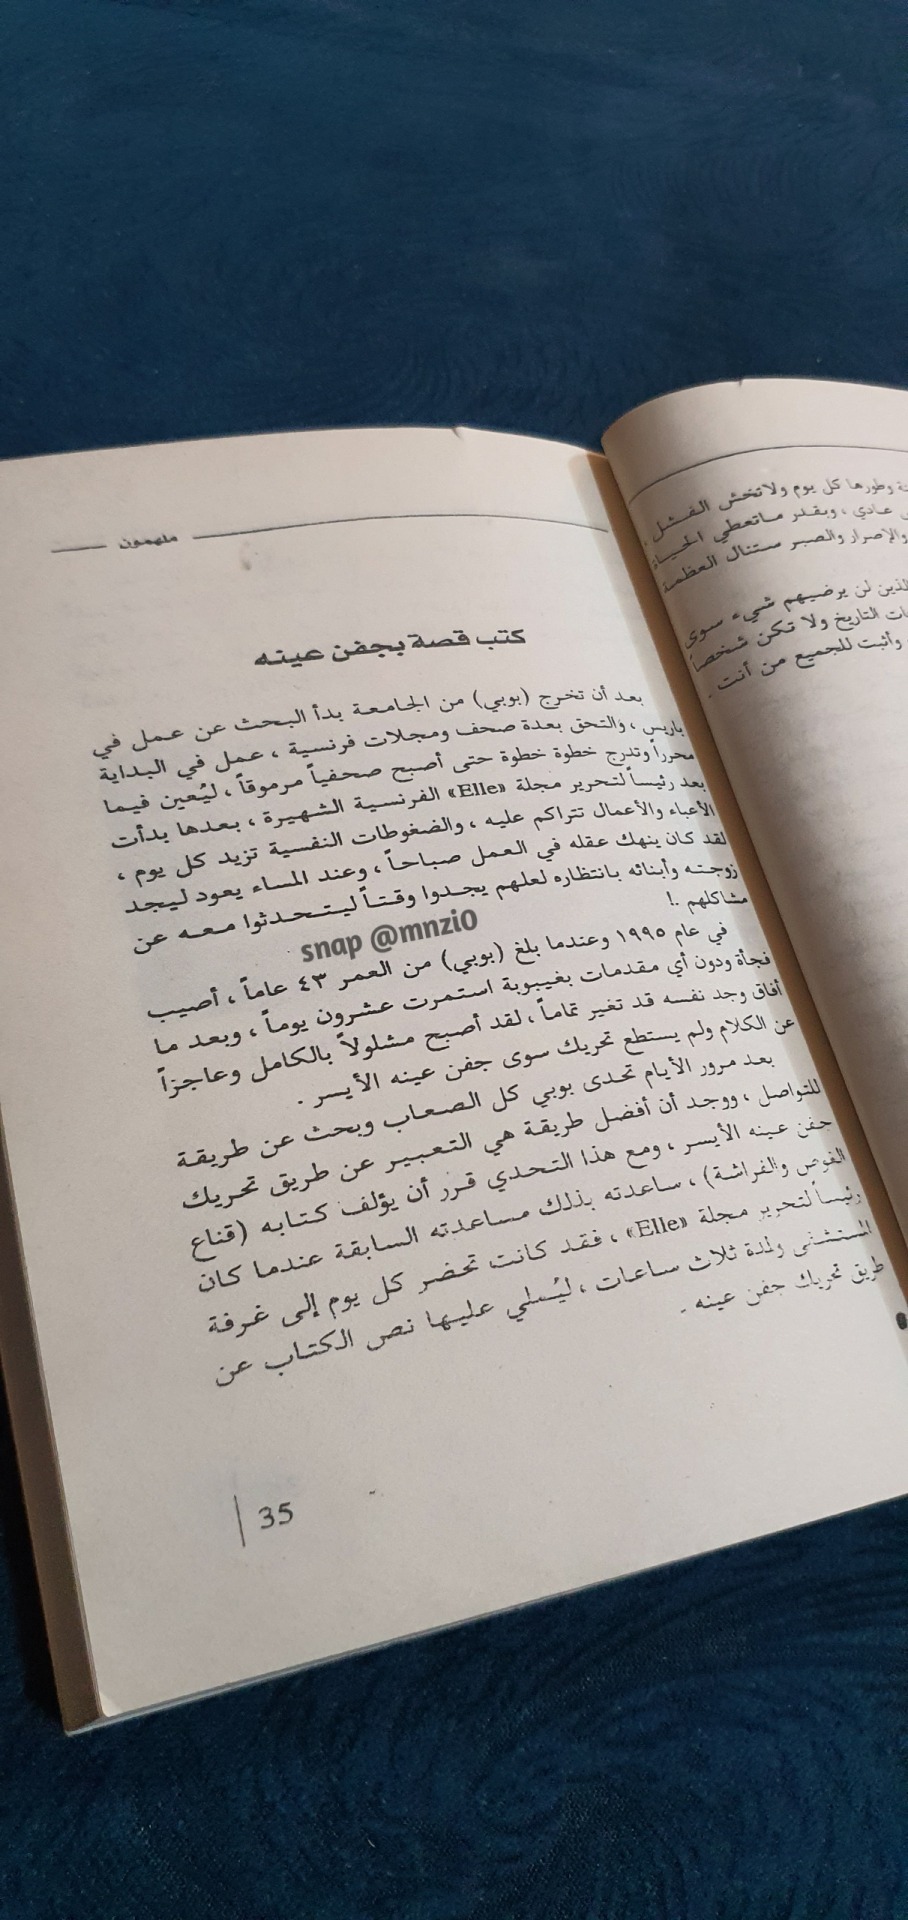 ملهمون
كتب قصة بجفن عينه
بعد أن تخرج (بوبي) من الجامعة بدأ البحث عن عمل في
باريس ، والتحق بعدة صحف ومجلات فرنسية ، عمل في البداية
محرراً وتدرج خطوة خطوة حتى أصبح صحفياً مرموقاً ، ليُعين فيما
بعد رئيساً لتحرير مجلة «Elle» الفرنسية الشهيرة ، بعدها بدأت
الأعباء والأعمال تتراكم عليه ، والضغوطات النفسية تزيد كل يوم ،
لقد كان ينهك عقله في العمل صباحاً ، وعند المساء يعود ليجد
زوجته وأبنائه بانتظاره لعلهم يجدوا وقتاً ليتحدثوا معه عن
مشاكلهم .!
snap @mnzi0
في عام ١٩٩٥ وعندما بلغ (بوبي) من العمر ٤٣ عاماً ، أصيب
فجأة ودون أي مقدمات بغيبوبة استمرت عشرون يوماً ، وبعد ما
أفاق وجد نفسه قد تغير تماماً ، لقد أصبح مشلولاً بالكامل وعاجزاً
عن الكلام ولم يستطع تحريك سوى جفن عينه الأيسر .
بعد مرور الأيام تحدى بوبي كل الصعاب وبحث عن طريقة
للتواصل ، ووجد أن أفضل طريقة هي التعبير عن طريق تحريك
جفن عينه الأيسر ، ومع هذا التحدي قرر أن يؤلف كتابه (قناع
الغوص والفراشة) ، ساعدته بذلك مساعدته السابقة عندما كان
رئيساً لتحرير مجلة «Elle» ، فقد كانت تحضر كل يوم إلى غرفة
المستشفى ولمدة ثلاث ساعات ، ليُملي عليها نص الكتاب عن
طريق تحريك جفن عينه .
35
وطورها كل يوم ولاتخش الفشل ،
عادي ، وبقدر ماتعطي الحياة
والإصرار والصبر ستنال العظمة
الذين لن يرضيهم شيء سوى
التاريخ ولا تكن شخصاً
وأثبت للجميع من أنت .